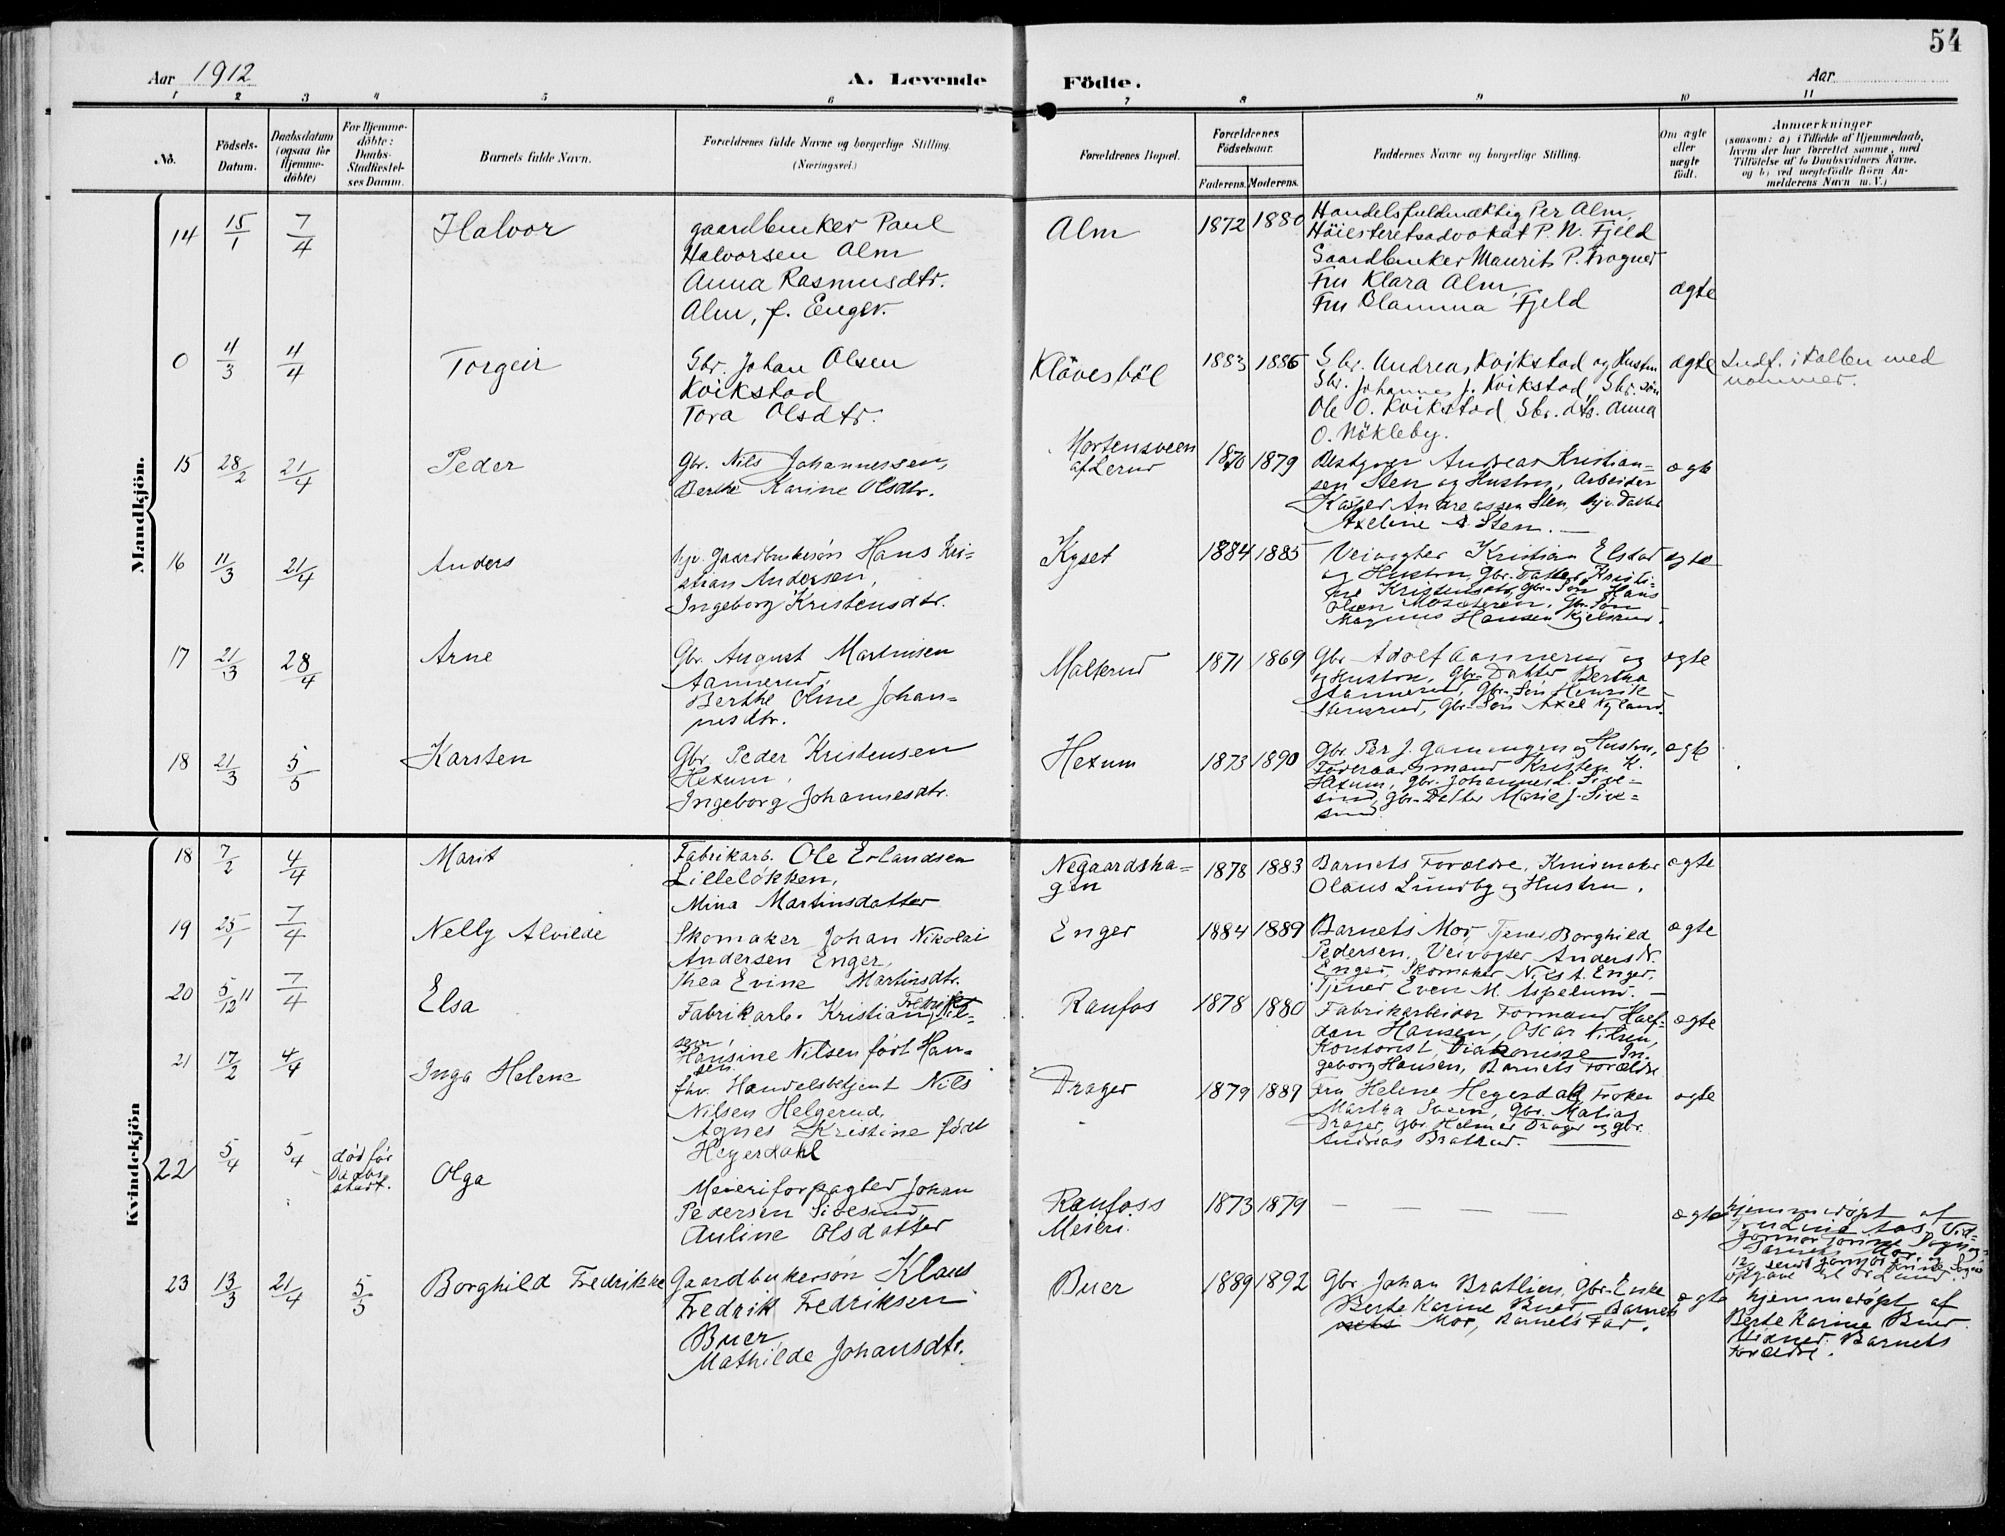 54
Aar 1912
A. Levende
Födte.
Aar
1 2 3 4 5 6 7 8 9 10 11
No.
Födsels-Datum.
Daabsdatum (ogsaa for Hjemme-döbte)
For Hjemme-döbte: Daabs-Stadfæstel-ses Datum.
Barnets fulde Navn.
Forældrenes fulde Navne og borgerlige Stilling.
(Næringsvei.)
Forældrenes Bopæl.
Forældrenes Födselsaar.
Faderens. Moderens.
Faddernes Navne og borgerlige Stilling.
Om ægte eller uægte födt.
Anmærkninger
(saasom: a) i Tilfælde af Hjemmedaab,
hvem der har forrettet samme, med
Tilföielse af to Daabsvidners Navne.
og b) ved uægtefödte Börn An-
melderens Navn m. V.)
Mandkjön.
14 15/1 7/4 Halvor
gaardbruker Paul
Halvorsen Alm
Anna Rasmusdtr.
Alm, f. Enger.
Alm 1872 1880
Handelsfuldmæktig Per Alm,
Höiesteretsadvokat P. N. Fjeld
Gaardbruker Maurits P. Fragner
Fru Klara Alm
Fru Fjeld
ægte
0 4/3 4/4 Torgeir
Gbr. Johan Olsen
Kvikstad
Tora Olsdtr.
Klövesböl 1883 1886
Gbr. Andreas Kvikstad og Hustru
Gbr. Johannes J. Kvikstad Gbr. sön
Ole O. Kvikstad Gbr. dtr. Anna
O. Nökleby.
ægte
Indf. i Kolbu med
nommer.
15 28/2 21/4 Peder
Gbr. Nils Johannessen,
Berthe Karine Olsdtr.
Mortensveen
af Lerud
1870 1879
Bestyrer Andreas Kristian=
sen Sten og Hustru, Arbeider
Andreassen Sten, hjv. Datter
Axeline A. Sten.
ægte
16 11/3 21/4 Anders
hjv. gaardbrukersøn Hans Kri=
stian Andersen,
Ingeborg Kristensdtr.
Kyset 1884 1885
Veivogter Kristian Elstad
og Hustru, Gbr. Datter Kristi=
ne Kristensdtr, Gbr.-Søn Hans
Olsen, Gbr. Søn
Magnus Hansen Kjelsrud.
ægte
17 21/3 28/4 Arne
Gbr. August Martinsen
Aannerud,
Berthe Oline Johan=
nesdtr.
Malterud 1871 1869
Gbr. Adolf Aannerud og
Hustru, Gbr.-Datter Bertha
Aannerud, Gbr.-Søn Henrik
Stensrud, Gbr-Søn Axel Nyland.
ægte
18 21/3 5/5 Karsten
Gbr. Peder Kristensen
Hexum,
Ingeborg Johannesdtr.
Hexum 1873 1890
Gbr. Per J. og Hustru,
Föderaadsmand Kristen K.
Hexum, Gbr. Johannes L. Sive=
sind, Gbr-Datter Marie J. Sive=
sind.
ægte
Kvindekjön
18 7/2 4/4 Marit
Fabrikarb. Ole Erlandsen
Lilleløkken,
Mina Martinsdatter
Negaardsha=
gen
1878 1883
Barnets Forældre, Knivmaker
Olaus Lundby og Hustru.
ægte
19 25/1 7/4 Nelly Alvilde
Skomaker Johan Nikolai
Andersen Enger,
Thea Evine Martinsdtr.
Enger 1884 1889
Barnets Mor, Tjener Borghild
Pedersen, Veivogter Anders N.
Enger, Skomaker Nils A. Enger,
Tjener Even M. Aspelund.
ægte
20 5/12 11 7/4 Elsa
Fabrikarb. Kristian Fredrik Nil=
sen,
Hansine Nilsen født Han=
sen.
Raufos 1878 1880
Fabrikarbeider Formand Half-
dan Hansen, Oscar Nilsen,
Kontorist, Diakonisse In=
geborg Hansen, Barnets Forældre
ægte
21 17/2 4/4 Inga Helene
fhv. Handelsbetjent Nils
Nilsen Helgerud,
Agnes Kristine født
Heyerdahl
Drager 1879 1889
Fru Helene Heyerdahl, Frøken
Martha Sveen, Gbr. Matias
Drager, Gbr. Helmer Drager og gbr.
Andreas Bratrud.
ægte
22 5/4 5/4
død før
Daabs
stadf.
Olga
Meieriforpagter Johan
Pedersen Sivesind,
Auline Olsdatter
Raufoss
Meieri.
1873 1879
— — — — —
ægte
hjemmedøpt af
23 13/3 21/4 5/5 Borghild Fredrikke
Gaardbrukersøn Klaus
Fredrik Fredriksen
Buer,
Mathilde Johansdtr.
Buer 1889 1892
Gbr. Johan Bratlien, Gbr.-Enke
Berte Karine Buer, Barnets
Mor, Barnets Far.
ægte
hjemmedøpt af
Berte Karine Buer.
Vidner: Barnets
Forældre.